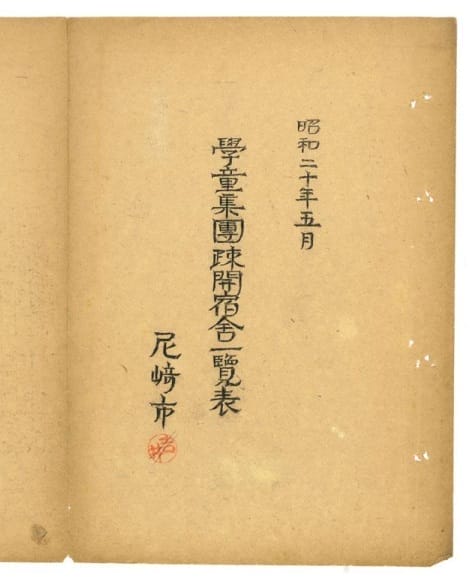 昭和二十年五月
學童集團疎開宿舍一覽表
尼﨑市